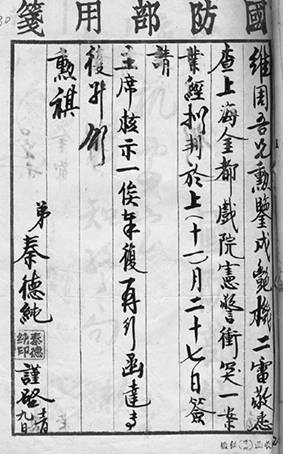 國防部用箋
維周吾兄勳鑒戌豔機二電敬悉
查上海金都戲院憲警衝突一案
業經擬判於上(十一)月二十七日簽
請
主席核示一俟奉復再行函達專
復并頌
勳祺
弟 秦德純 謹啓 九日
秦德純印